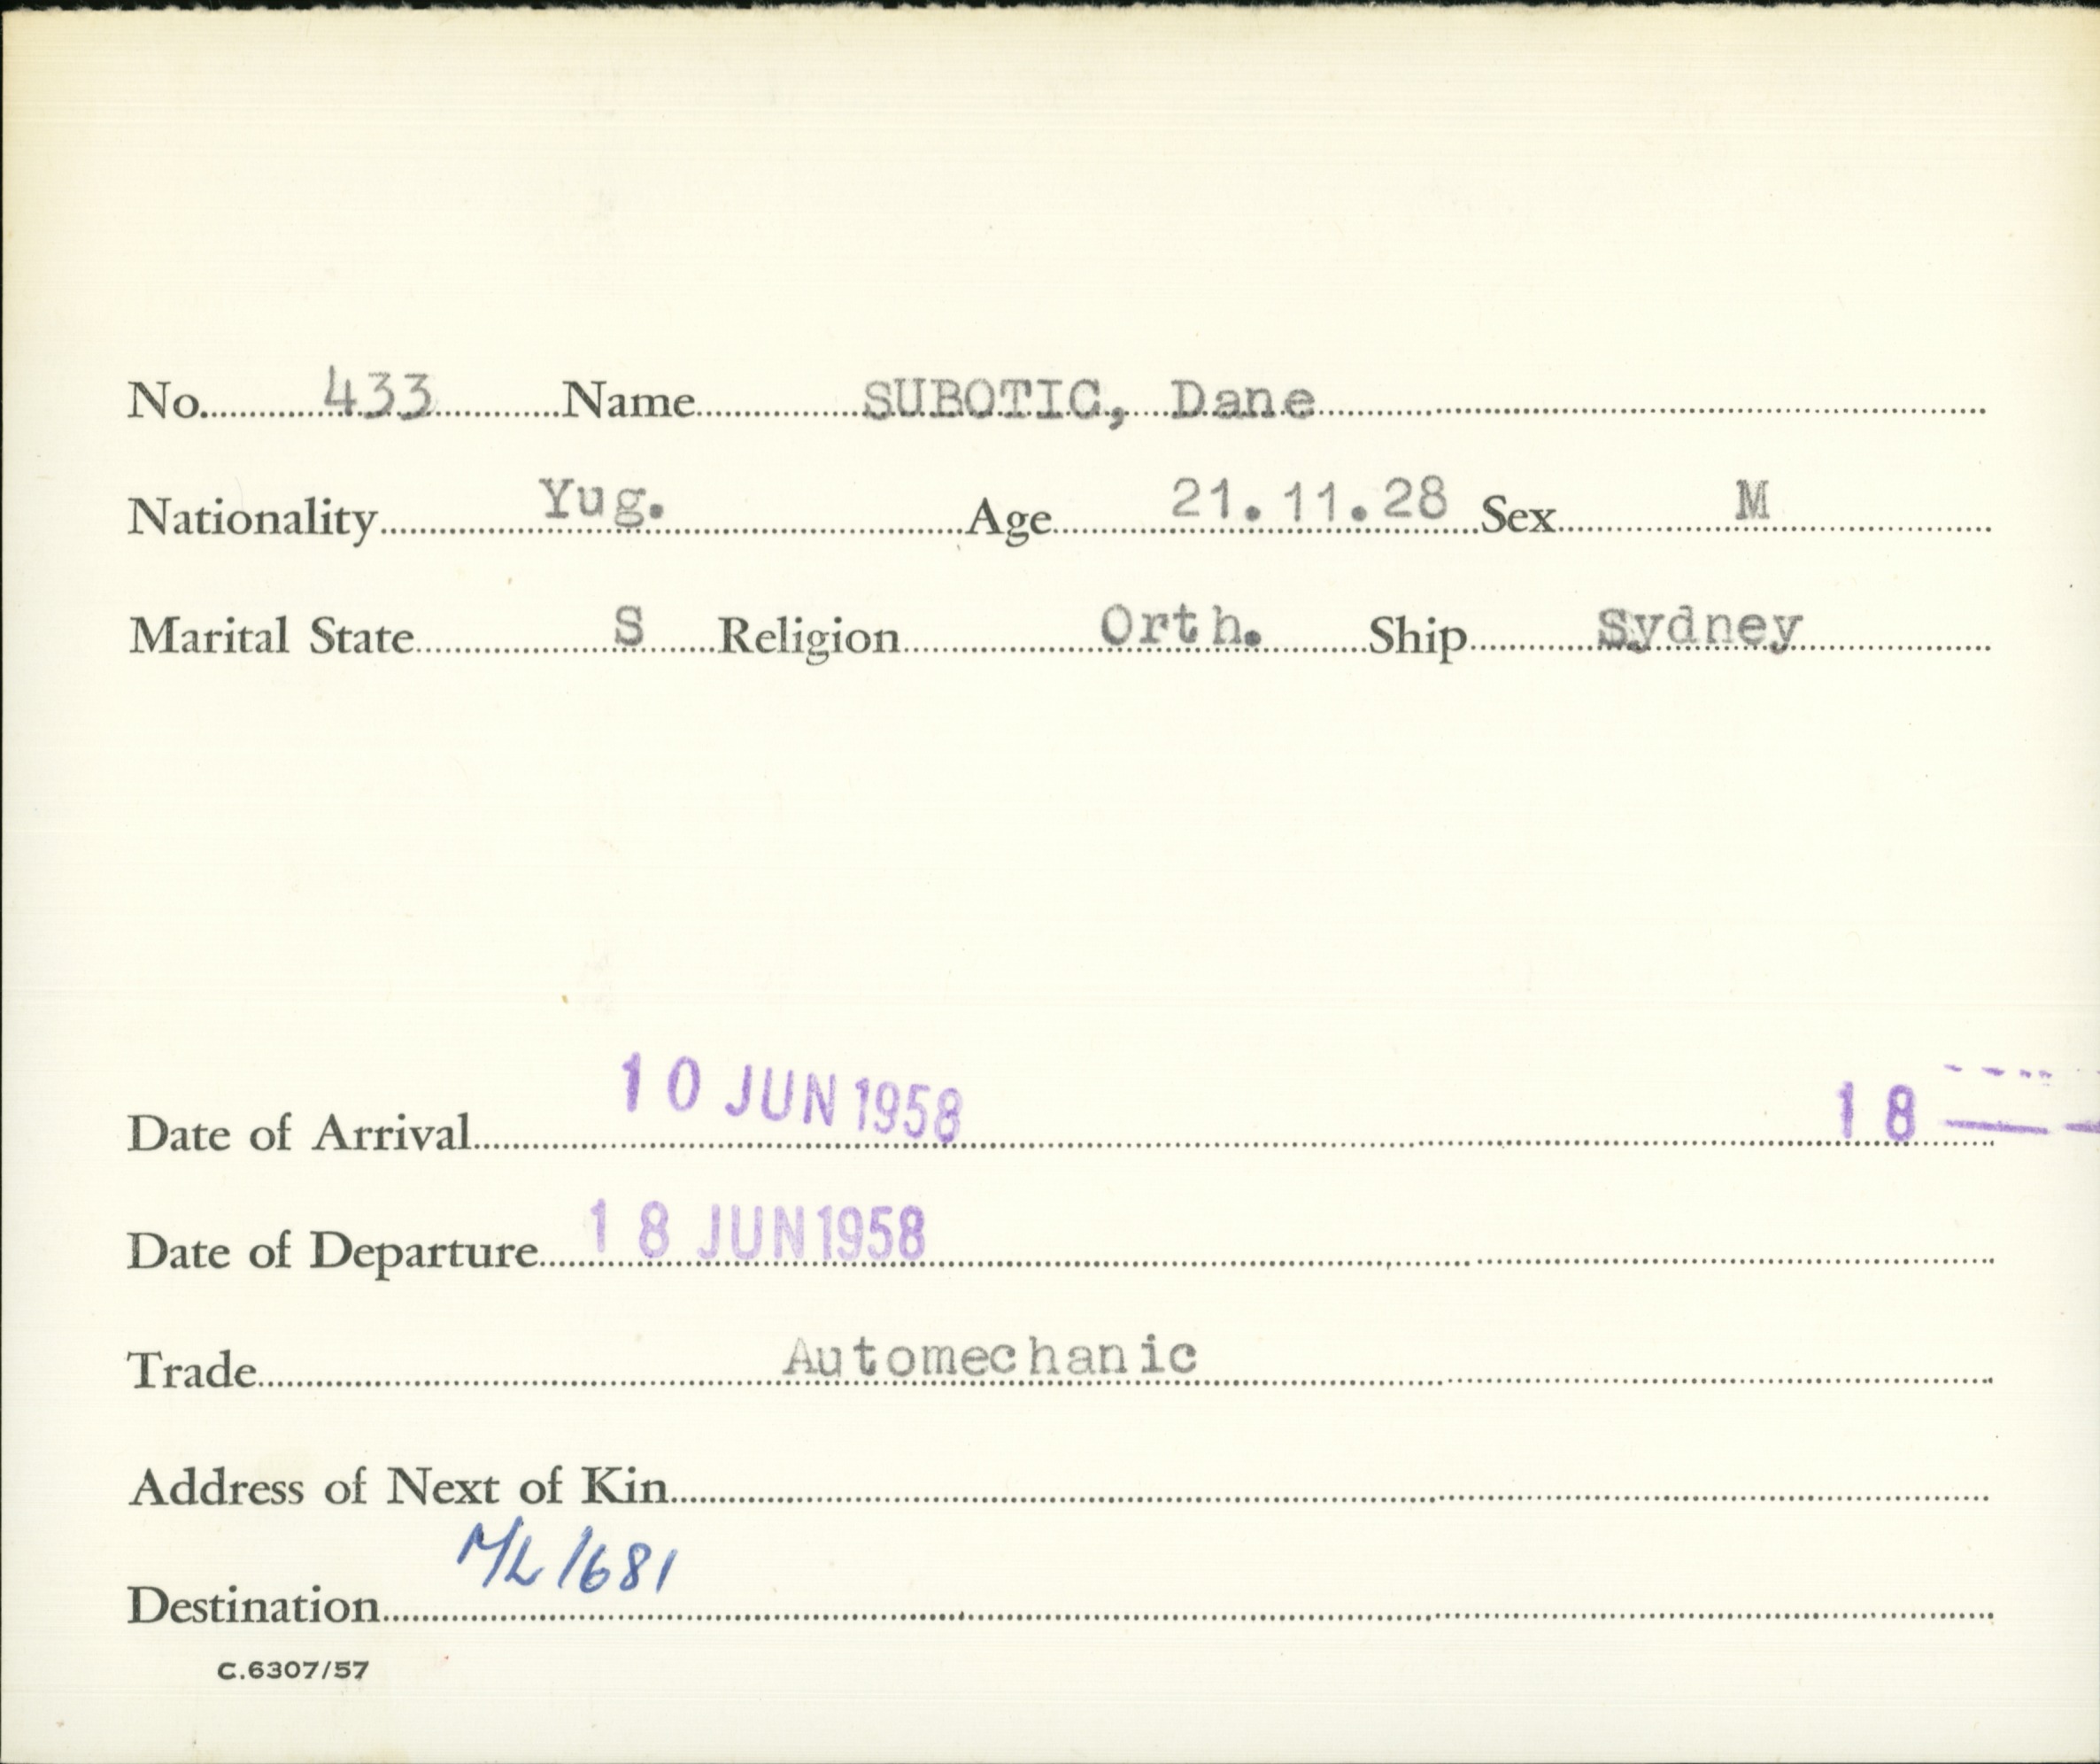 No. 433 Name SUBOTIC, Dane
Nationality Yug. Age 21.11.28 Sex M
Marital State S Religion Orth. Ship Sydney
Date of Arrival 10 JUN 1958 18
Date of Departure 18 JUN 1958
Trade Automechanic
Address of Next of Kin
Destination M/L/681
C.6307/57